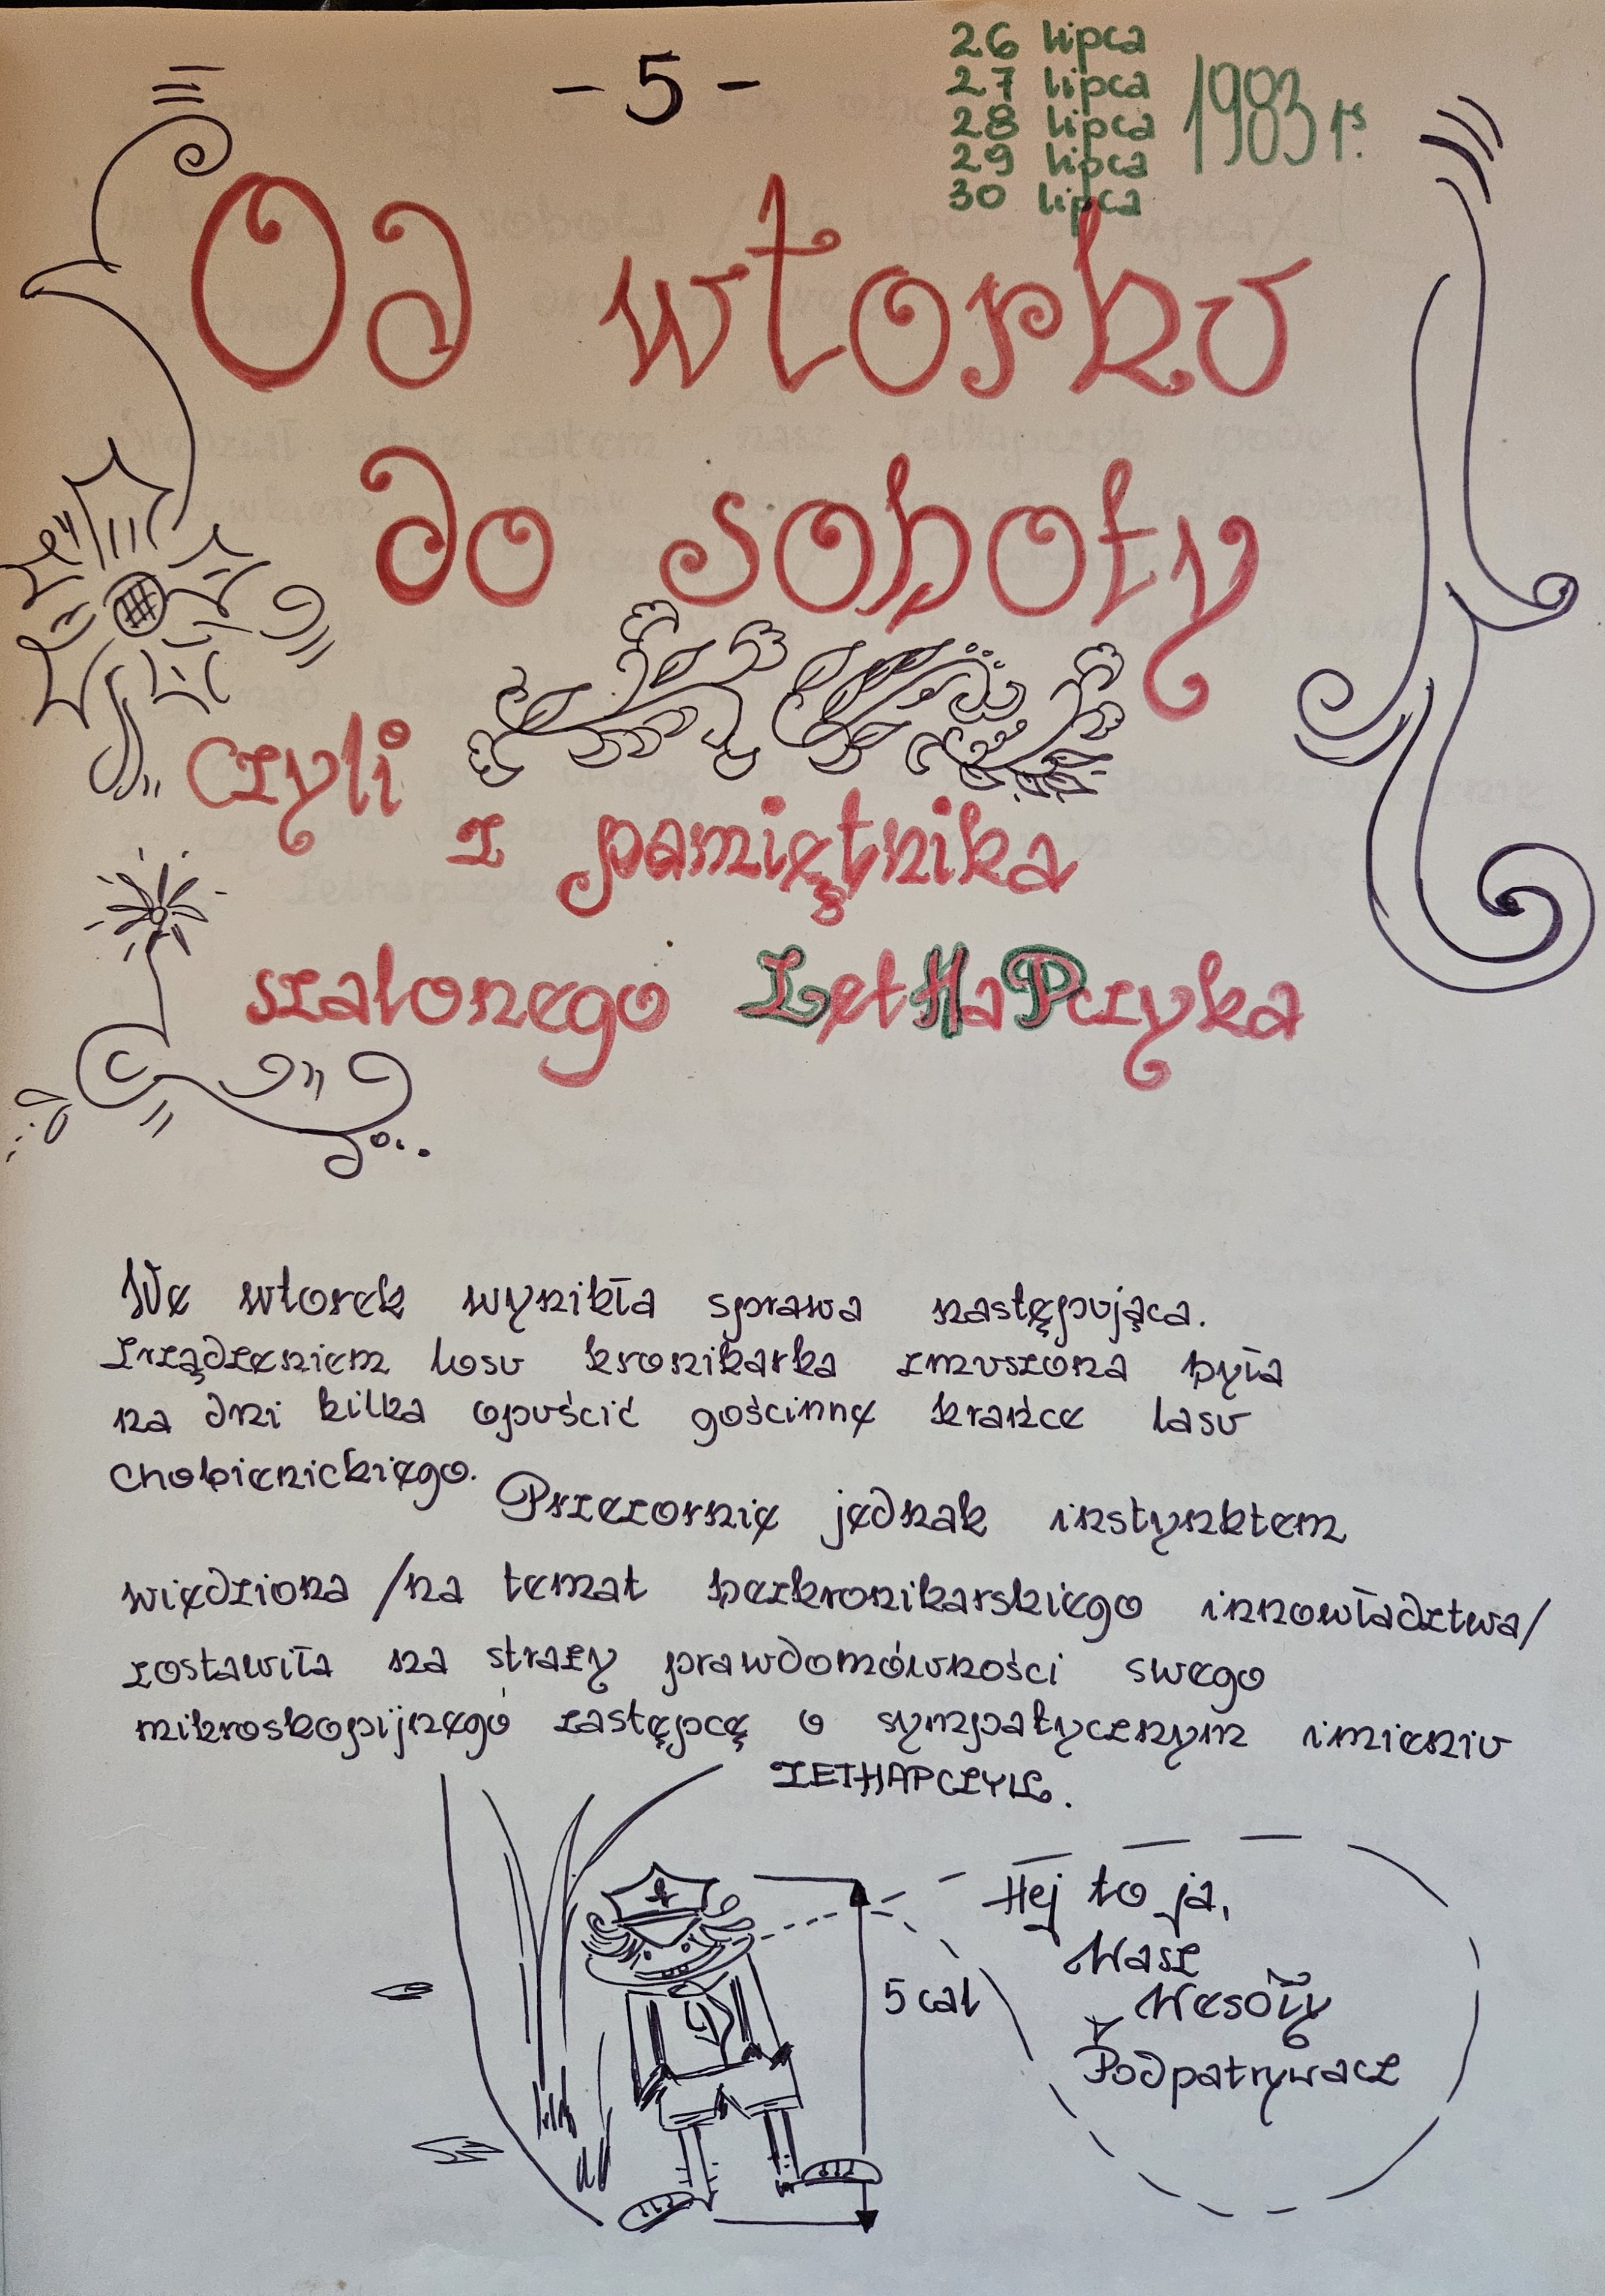 - 5 -
26 lipca
27 lipca
28 lipca
29 lipca
30 lipca
1983 r.
Od wtorku
do soboty
czyli
z pamiętnika
szalonego ZetHaPczyka
We wtorek wynikła sprawa następująca.
Zrządzeniem losu kronikarka zmuszona była
na dni kilka opuścić gościnne krańce lasu
chobienickiego.
Przezornie jednak instynktem
wiedziona /na temat bezkronikarskiego innowładztwa/
zostawiła na straży prawdomówności swego
mikroskopijnego zastępcę o sympatycznym imieniu
ZETHAPCZYK.
Hej to ja,
Wasz
Wesoły
Podpatrywacz
5 cal